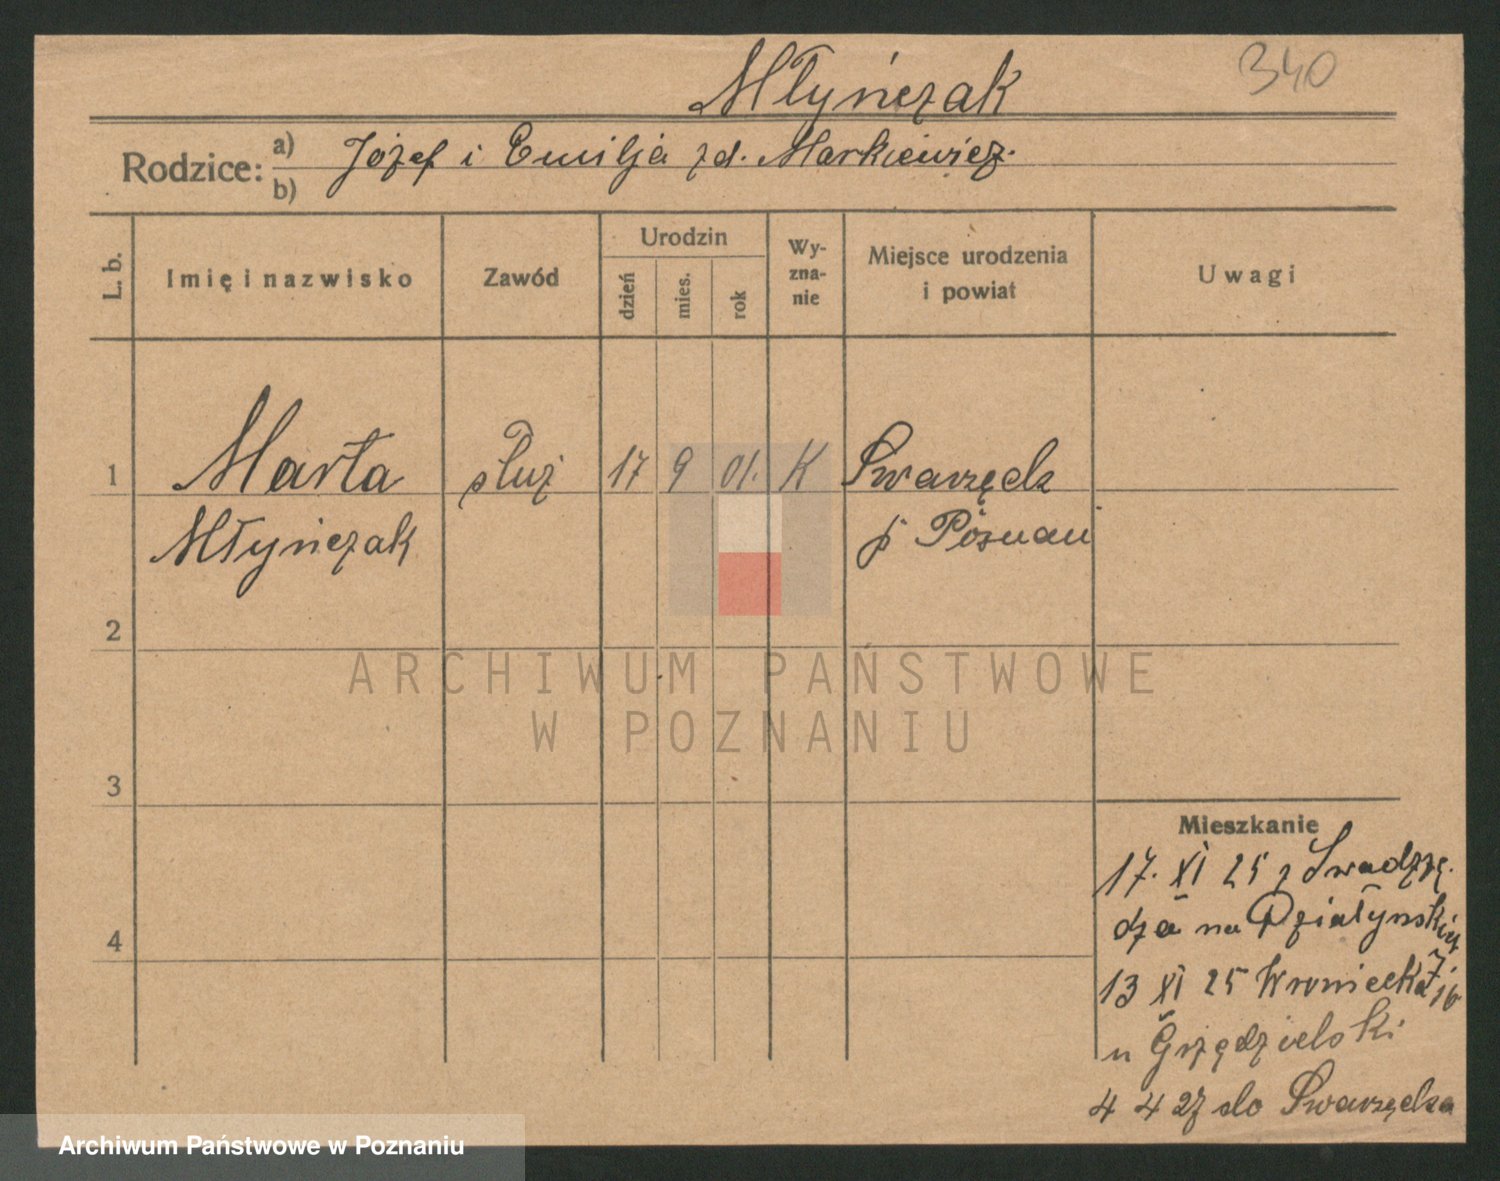 Młyńczak
340
Rodzice:
a) Józef i Emilja zd. Markiewicz.
b)
L. b.
Imię i nazwisko
Zawód
Urodzin
dzień
mies.
rok
Wy-
zna-
nie
Miejsce urodzenia
i powiat
Uwagi
1 Marta służ 17 9 01. K Swarzędz
Młyńczak p Poznań
2
3
4
Mieszkanie
17. XI 25 z
dza na Działyńskich
7.
13 XI 25 Wroniecka 16
u Grzędzielski
4 4 27 do Swarzędza
ARCHIWUM PAŃSTWOWE
W POZNANIU
Archiwum Państwowe w Poznaniu